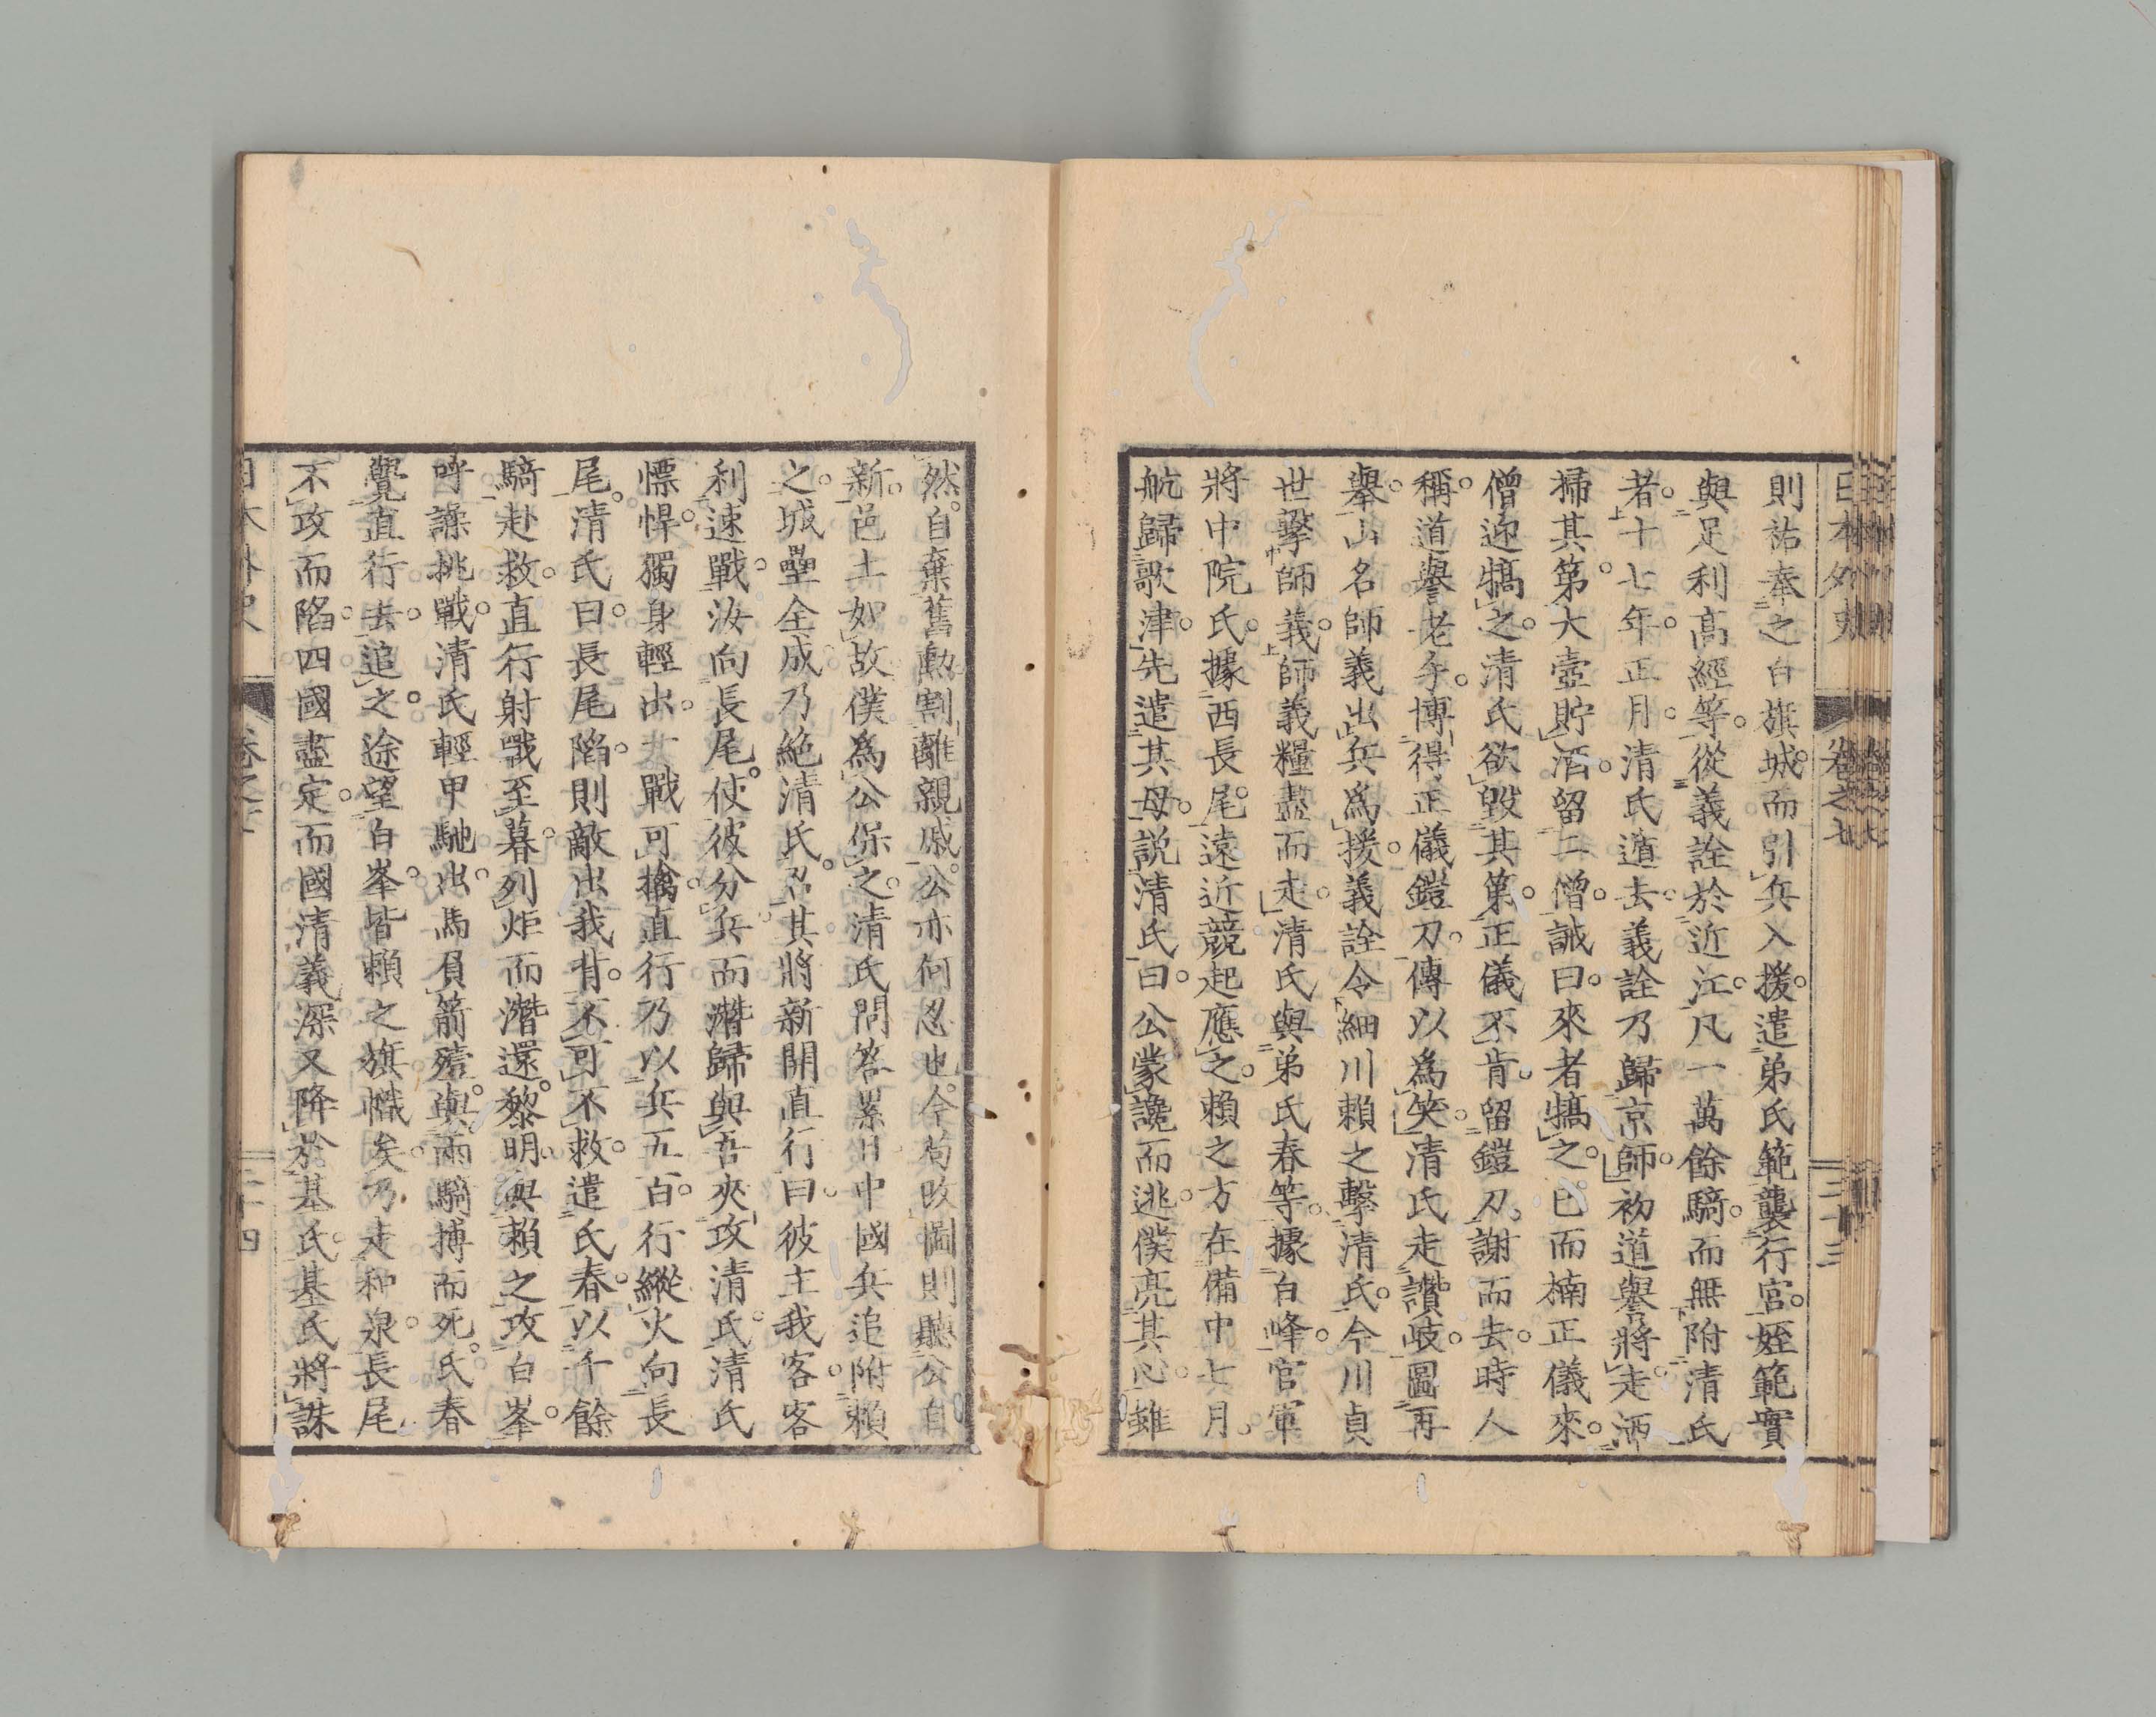 日本外史 卷之七 三十三
則祐奉之白旗城。而引兵入援。遣弟氏範襲行宮。姪範實
與足利高經等。從義詮於近江。凡一萬餘騎。而無附清氏
者。十七年。正月。清氏遁去。義詮乃歸京師。初道譽將走。洒
掃其第。大壺貯酒。留二僧。誡曰。來者犒之。已而楠正儀來。
僧迎犒之。清氏欲毀其第。正儀不肯。留鎧刀。謝而去。時人
稱。道譽老手。博得正儀鎧刀。傳以爲笑。清氏走讚岐。圖再
擧。山名師義出兵爲援。義詮令細川賴之擊清氏。今川貞
世擊師義。師義糧盡而走。清氏與弟氏春等。據白峰。官軍
將中院氏。據西長尾。遠近競起應之。賴之方在備中。七月。
航歸歌津。先遣其母。說清氏曰。公蒙讒而逃。僕亮其心。雖
然。自棄舊勳。割離親戚。公亦何忍也。今苟改圖。則聽公自
新。邑土如故。僕爲公保之。清氏問答累日。中國兵追附賴
之。城壘全成。乃絶清氏。召其將新開直行曰。彼主我客。客
利速戰。汝向長尾。使彼分兵。而潛歸與吾夾攻清氏。清氏
慓悍。獨身輕出戰。可擒。直行乃以兵五百。行縱火向長
尾。清氏曰。長尾陷。則敵出我背。不可不救。遣氏春。以千餘
騎赴救。直行射戰至暮。列炬而潛還。黎明。與賴之攻白峯。
呼譟挑戰。清氏輕甲馳出。馬負箭殪。與兩騎搏而死。氏春
覺直行去。追之。途望白峯。皆賴之旗幟矣。乃走和泉。長尾
不攻而陷。四國盡定。而國清義深又降於基氏。基氏將誅
日本外史 卷之七 三十四